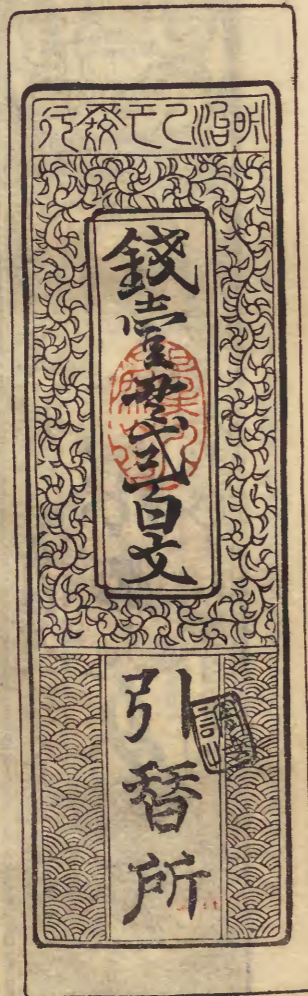 明治己巳發行
錢壹貫貳百文
引替所